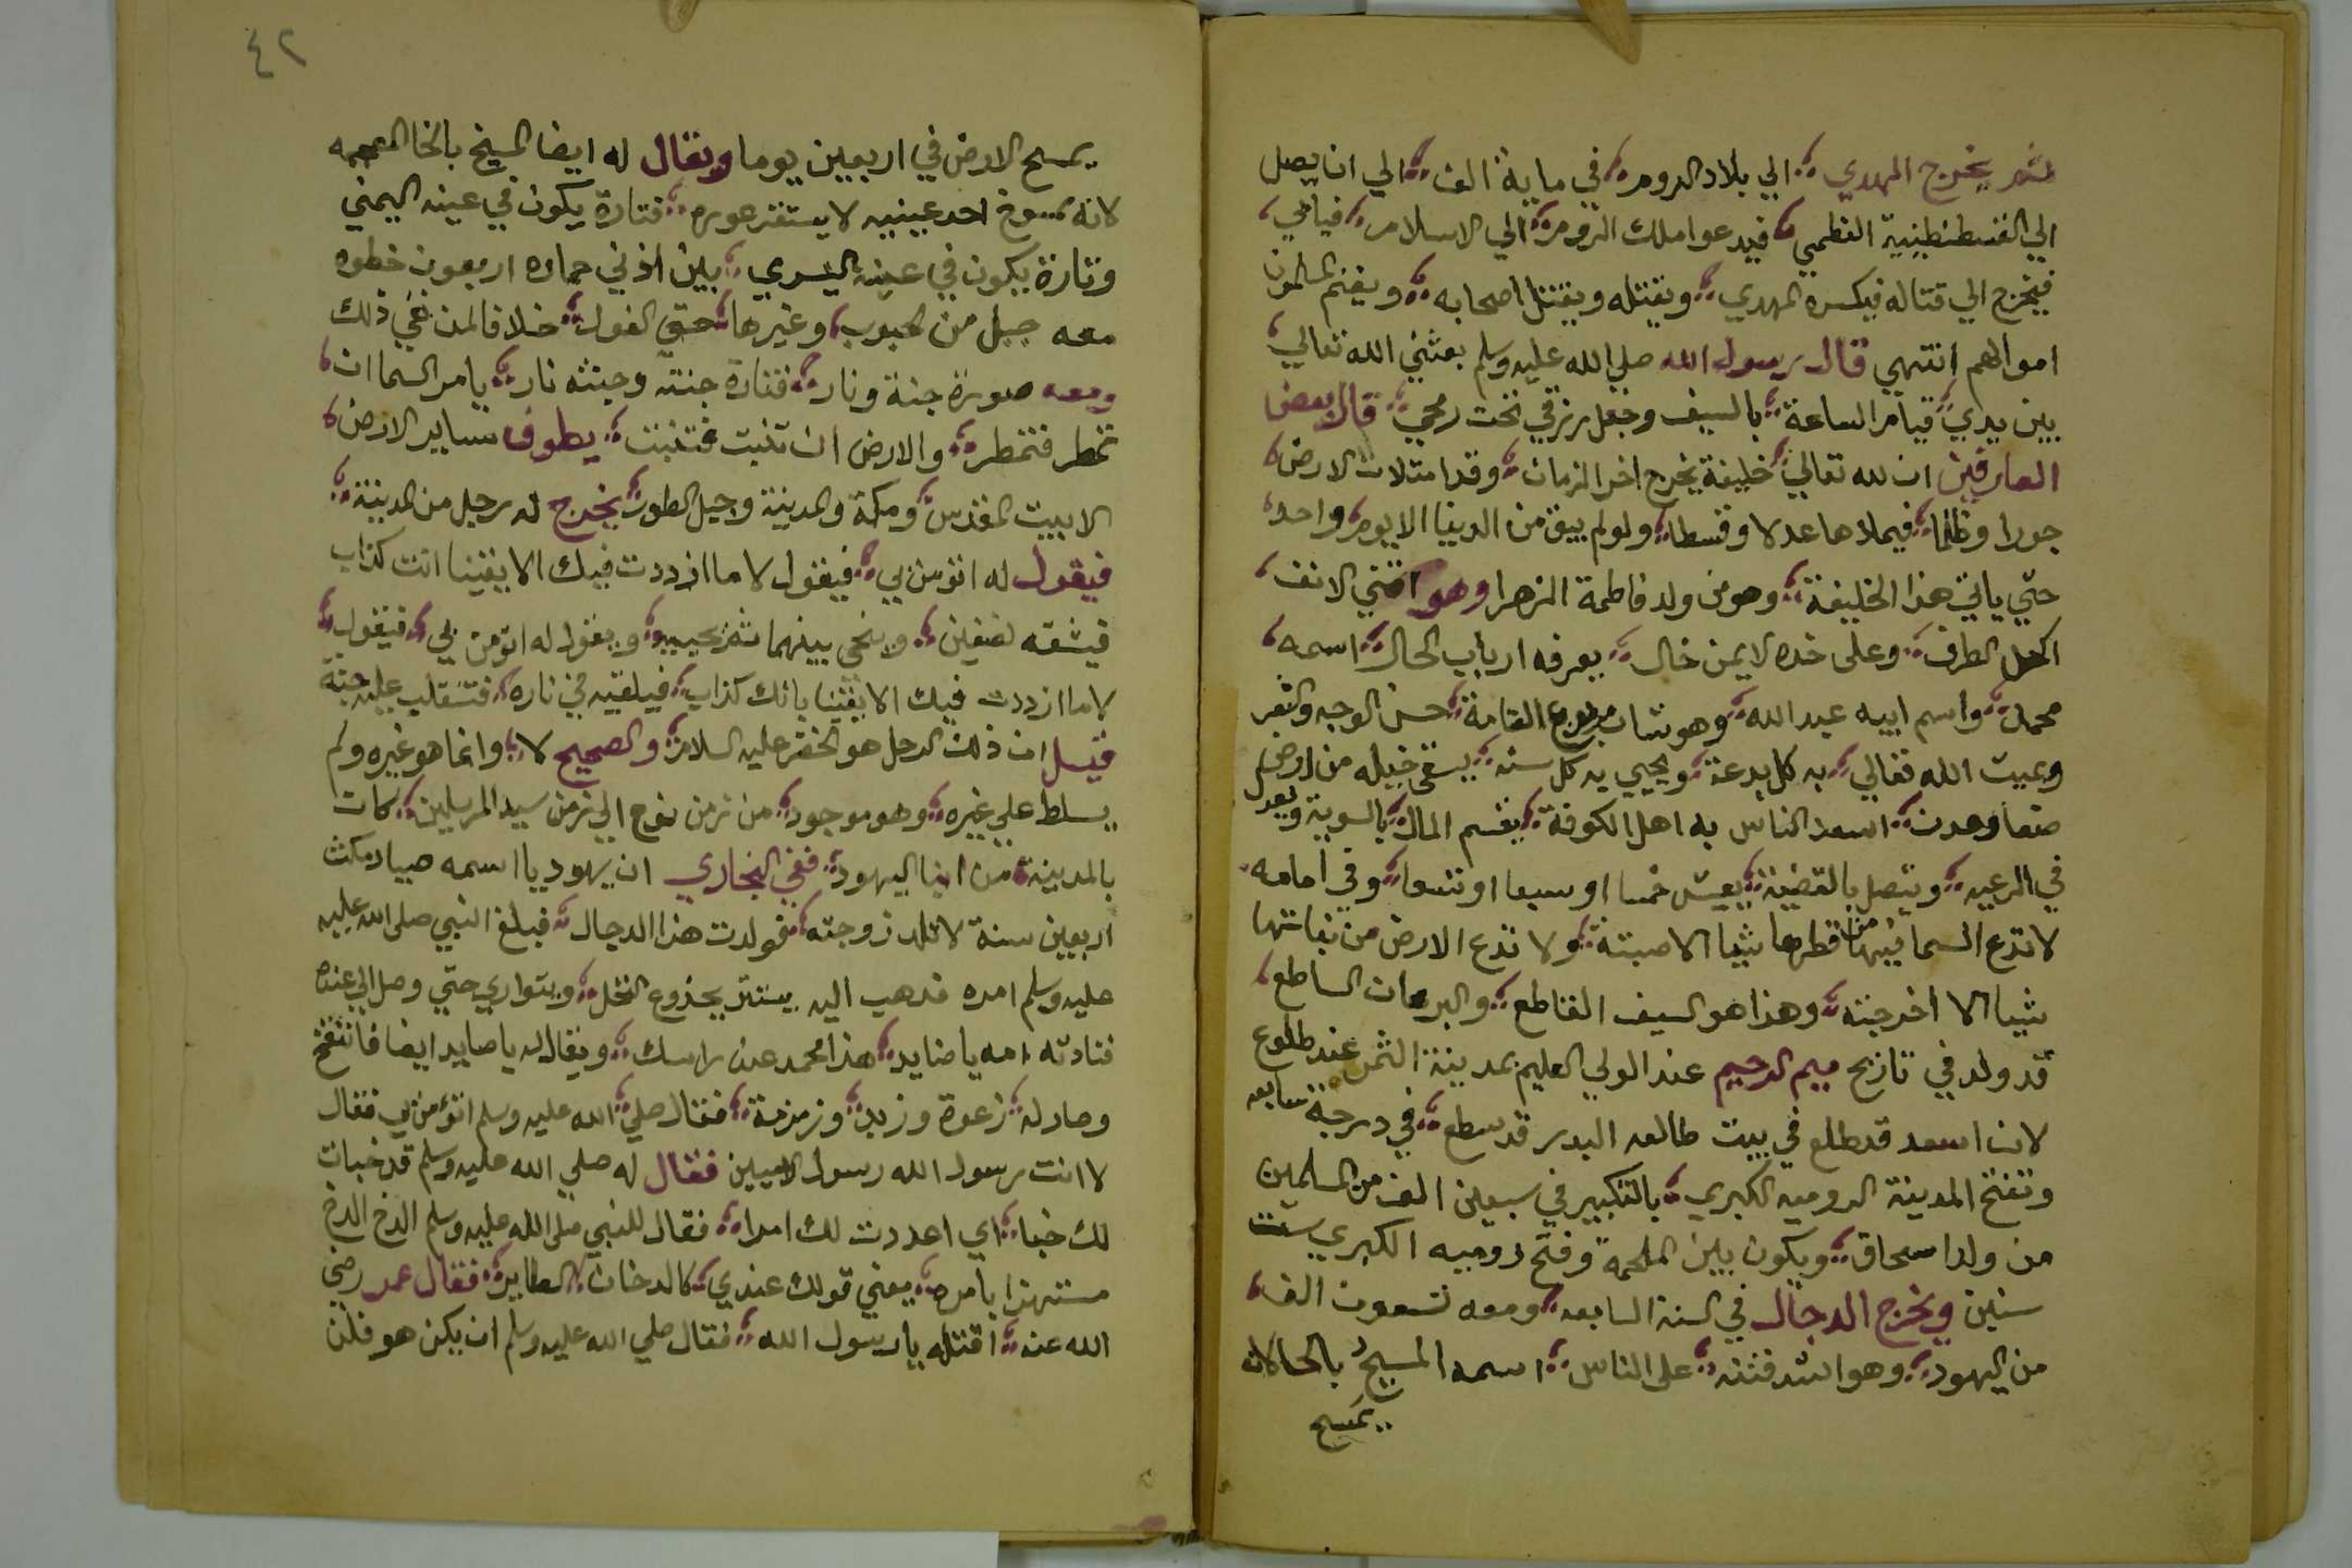 ثم يخرج المهدي الي بلاد الروم في ماية الف الي ان يصل
الي القسطنطينية العظمي فيدعوا ملك الروم الي الاسلام فيابي
فيخرج الي قتاله فيكسره المهدي ويقتله ويقتل اصحابه ويغنم المسلمون
اموالهم انتهي قال رسول الله صلي الله عليه وسلم بعثني الله تعالي
بين يدي قيام الساعة بالسيف وجعل رزقي تحت رمحي قال بعض
العارفين ان لله تعالي خليفة يخرج اخر الزمان وقد امتلات الارض
جورا وظلما فيملاها عدلا وقسطا ولو لم يبق من الدنيا الا يوم واحد
حتي ياتي هذا الخليفة وهو من ولد فاطمة الزهرا وهو اقني الانف
اكحل الطرف وعلى خده الايمن خال يعرفه ارباب الحال اسمه
محمد واسم ابيه عبد الله وهو شاب مربوع القامة حسن الوجه والثغر
ويميت الله تعالي به كل بدعة ويحيي به كل سنه يسقي خيله من ارض
صنعا وعدن اسعد الناس به اهل الكوفة يقسم المال بالسوية ويعدل
في الرعيه ويتصل بالقضية يعيش خمسا او سبعا او تسعا وفي امامه
لا تدع السما فيها من قطرها شيا الا صبته ولا تدع الارض من نباتها
شيا الا اخرجته وهذا هو السيف القاطع والبرهان الساطع
قد ولد في تاريخ ميم الرحيم عند الولي العليم بمدينة الثمن عند طلوع
لان اسعد قد طلع في بيت طالعه البدر قد سطع في درجة سابعه
وتفتح المدينة الروميه الكبري بالتكبير في سبعين الف من المسلمين
من ولد اسحاق ويكون بين الملحمة وفتح روميه الكبري ست
سنين ويخرج الدجال في السنة السابعه ومعه تسعون الف
من اليهود وهو اشد فتنه على الناس اسمه المسيح بالحا لانه
يمسح
٤٢
يمسح الارض في اربعين يوما ويقال له ايضا المسيخ بالخا المعجمه
لانه ممسوخ احد عينيه لا يستقر عوره فتارة يكون في عينه اليمني
وتارة يكون في عينه اليسري بين اذني حماره اربعون خطوه
معه جبل من الحبوب وغيرها حتي الفول خلافا لمن نفي ذلك
ومعه صورة جنة ونار فناره جنته وجنته نار يامر السما ان
تمطر فتمطر والارض ان تنبت فتنبت يطوف ساير الارض
الا بيت المقدس ومكة والمدينة وجبل الطور يخرج له رجل من المدينة
فيقول له اتؤمن بي فيقول لا ما ازددت فيك الا يقينا انت كذاب
فيشقه نصفين ويمشي بينهما ثم يحييه ويقول له اتومن بي فيقول
لا ما ازددت فيك الا يقينا بانك كذاب فيلقيه في ناره فتنقلب عليه جنة
قيل ان ذلك الرجل هو الخضر عليه السلام والصحيح لا وانما هو غيره ولم
يسلط علي غيره وهو موجود من زمن نوح الي زمن سيد المرسلين كان
بالمدينة من ابنا اليهود ففي البخاري ان يهوديا اسمه صياد مكث
اربعين سنة لا تلد زوجته فولدت هذا الدجال فبلغ النبي صلى الله عليه
عليه وسلم امره فذهب اليه يستتر بجذوع النخل ويتواري حتي وصل الي عنده
فنادته امه يا صايد هذا محمد عند راسك ويقال له يا صايد ايضا فانتفخ
وصار له زعوة وزبد وزمزمة فقال صلي الله عليه وسلم اتؤمن بي فقال
لا انت رسول الله رسول الاميين فقال له صلي الله عليه وسلم قد خبات
لك خبا اي اعددت لك امرا فقال للنبي صلى الله عليه وسلم الدخ الدخ
مستهزا بامره يعني قولك عندي كالدخان الطاير فقال عمر رضي
الله عنه اقتله يا رسول الله فقال صلي الله عليه وسلم ان يكن هو فلن